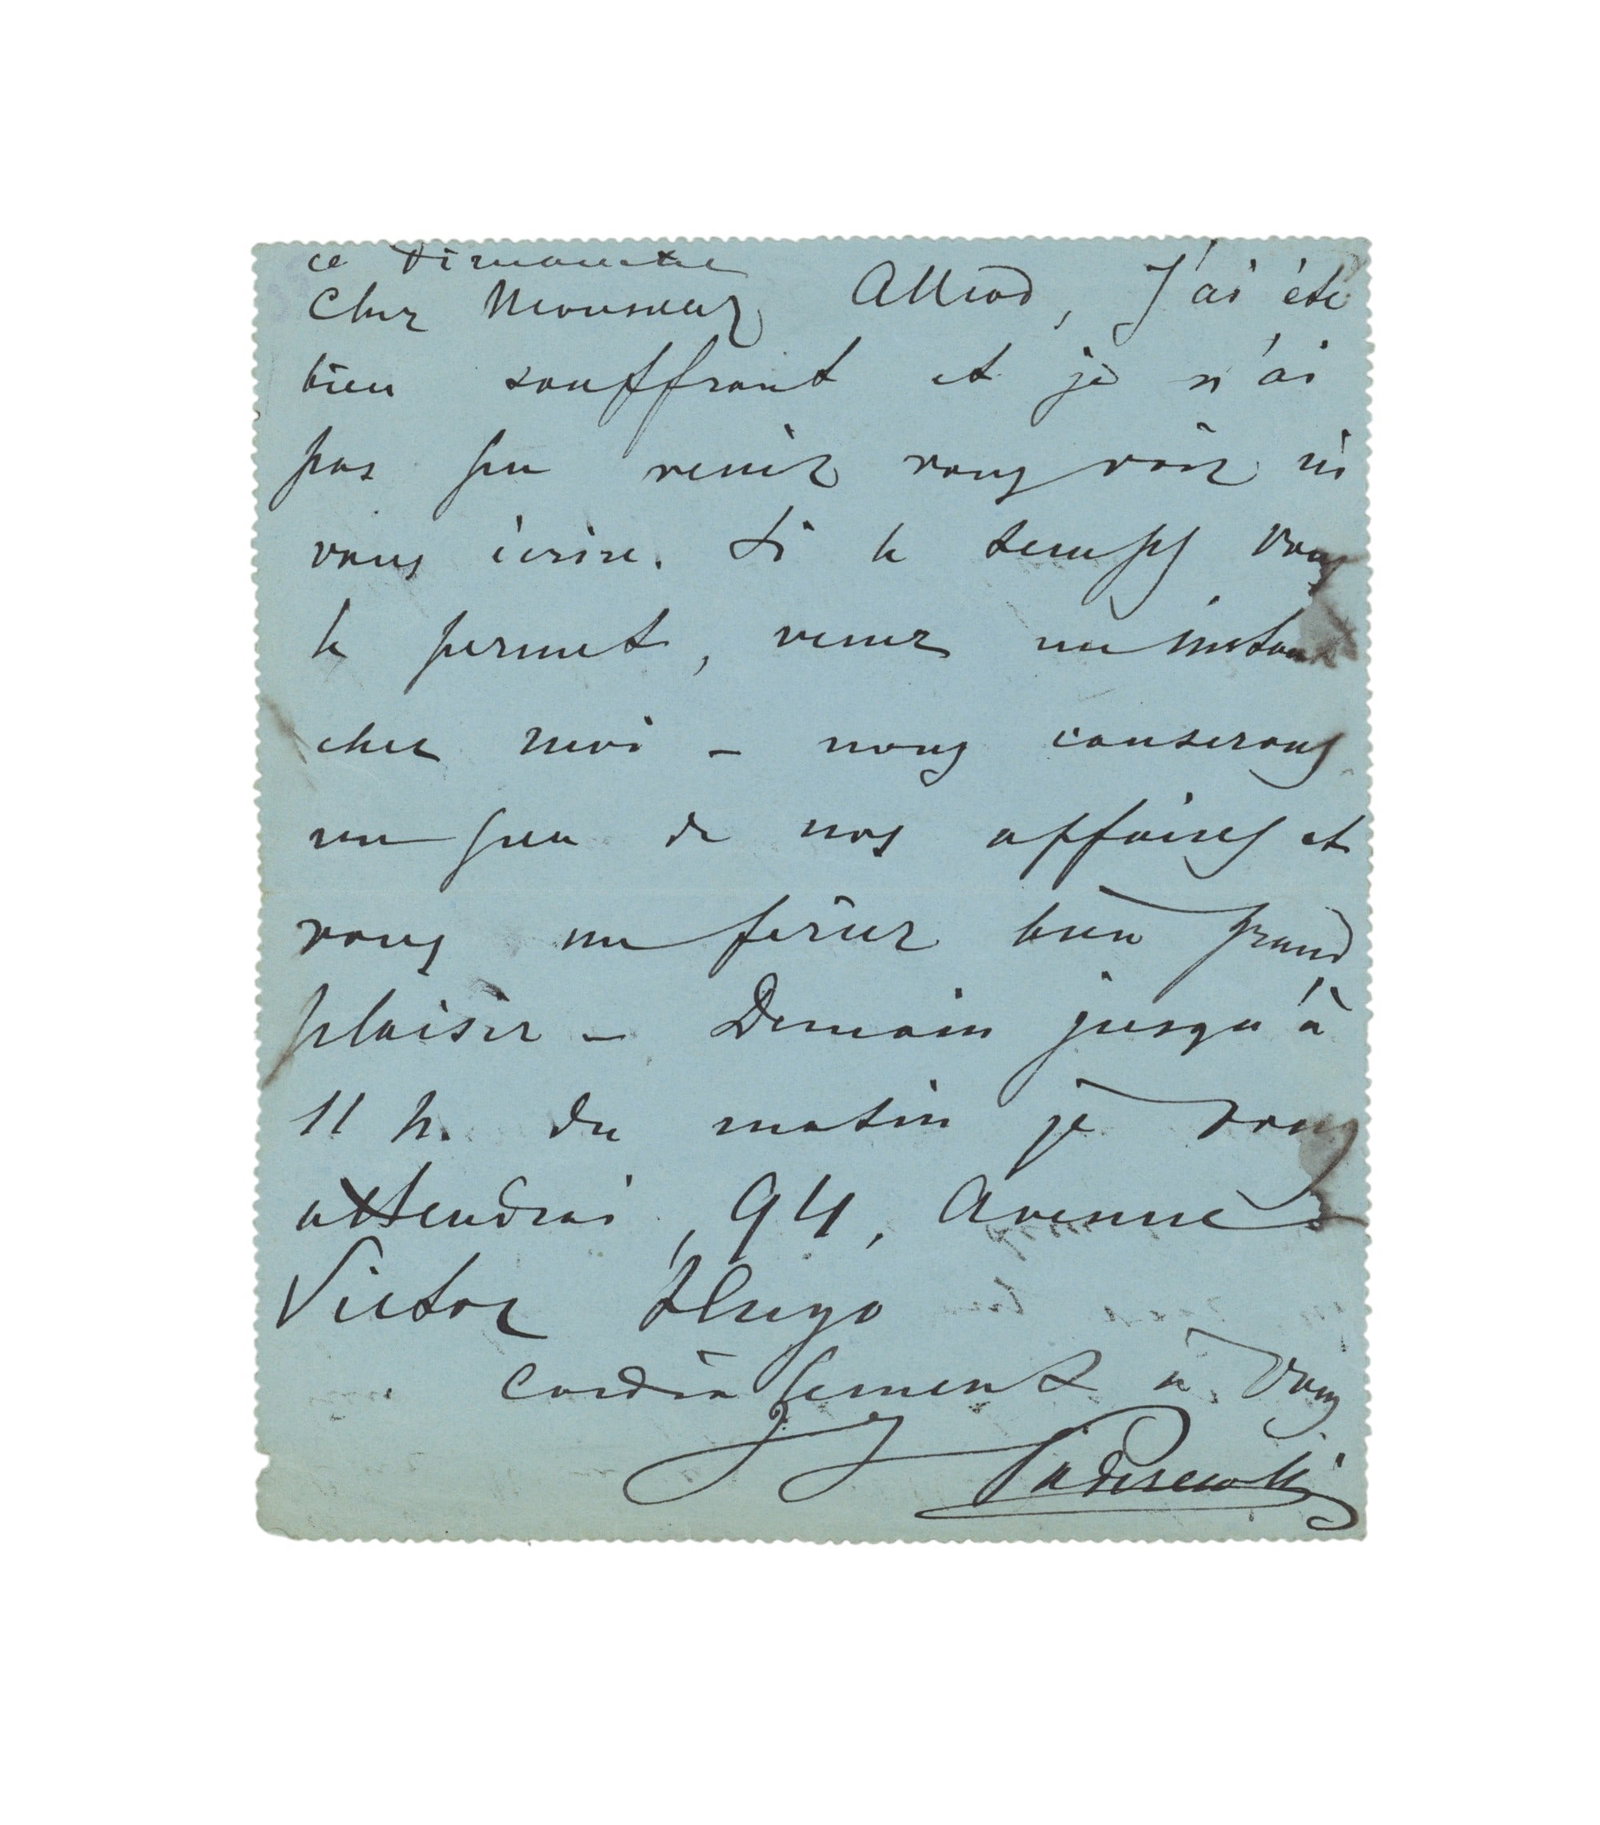 ce Dimanche
Cher Monsieur Alliod, J'ai été
bien souffrant et je n'ai
pas pu venir vous voir ni
vous écrire. Si le temps vous
le permet, venez un instant
chez moi – nous causerons
un peu de nos affaires et
vous me ferez bien grand
plaisir – Demain jusqu'à
11 h. du matin je vous
attendrai, 94, Avenue
Victor Hugo
Cordialement à vous
I J Paderewski